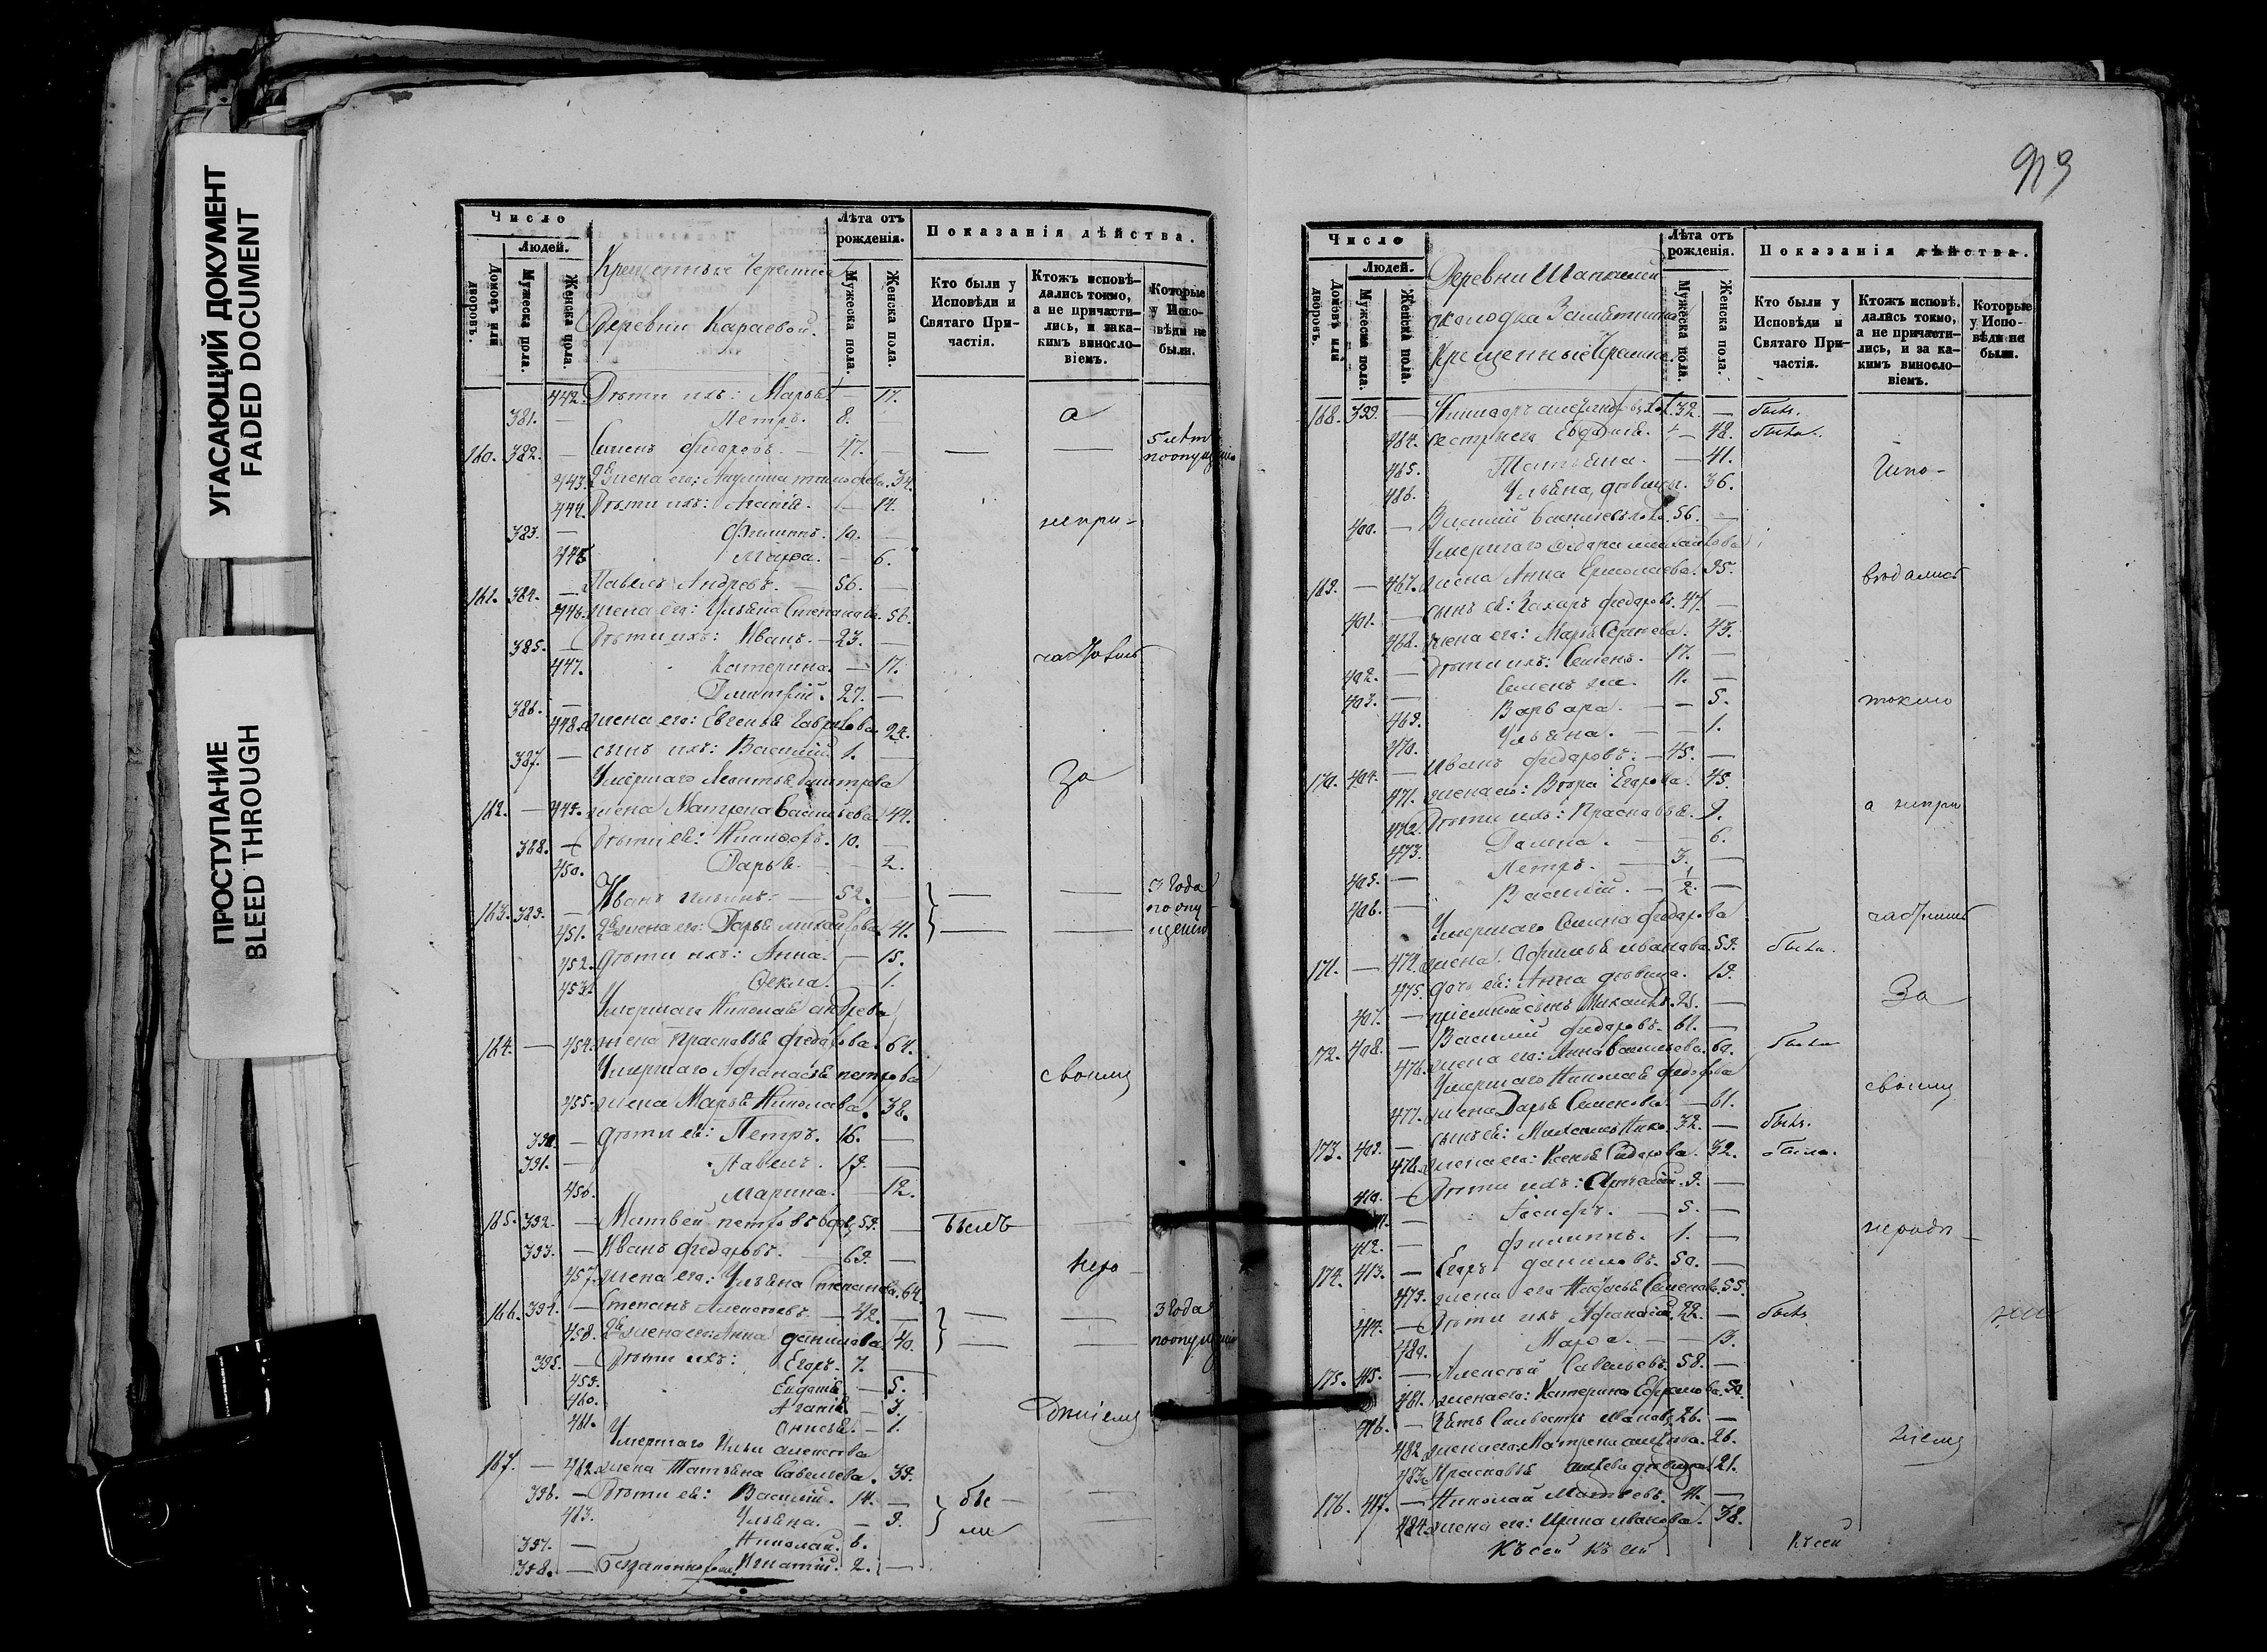 УГАСАЮЩИЙ ДОКУМЕНТ
FADED DOCUMENT
ПРОСТУПАНИЕ
BLEED THROUGH
Число
Людей.
Домовъ или дворовъ.
Мужеска пола.
Женска пола.
Крещенные Черемисы
Деревни Караевой.
Лѣта отъ рожденія.
Мужеска пола.
Женска пола.
Показанія дѣйства.
Кто были у Исповѣди и Святаго Причастія.
Ктожъ исповѣдались токмо, а не причастились, и за каким винословіемъ.
Которые у Исповѣди не были.
442. Дѣти ихъ: Марья — 17.
381. — Петръ. 8. — а
160. 382. — Семенъ Федоровъ. — 47. — 5 лѣт
443. 2я жена его: 34.
444. Дѣти ихъ: — 14.
383. — Филиппъ. 10. — непри-
445 Марфа. — 6.
161. 384. — Павелъ Андреевъ. — 56. —
446. жена его: Ульяна Степанова. 56.
385. — Дѣти ихъ: Иванъ. — 23. —
447. Катерина. — 17.
386. — Дмитрій. 27. —
448. жена его: Евгенья Гаврилова. 24.
387. — сынъ ихъ: Василій. 1. —
Умершаго Леонтья Дмитрева За
162. — 449. жена Матрена Васильева. 44.
388. — Дѣти ея: Никифоръ. 10. —
450. Дарья — 2.
163. 389. — Иванъ Ильинъ. — 52. — 3 года
451. 2я жена его: Дарья Михайлова. 41.
452. дѣти ихъ: Анна. — 15.
453. Фекла. — 1.
Умершаго Николая Андреева
164. — 454. жена Прасковья Федорова. 64.
Умершаго Афанасья Петрова своимъ
455. жена Марья Николаева. 38.
390. — дѣти ея: Петръ. 16. —
391. — Павелъ. 19. —
456. Марина. — 12.
165. 392. — Матвей Петровъ вдов. 59. — былъ
393. — Иванъ Федоровъ. — 69. —
457. жена его: Ульяна Степанова. 64.
166. 394. — Степанъ Алексѣевъ. — 42. — 3 года
458. 2я жена его: Анна Данилова. 40.
395. — Дѣти ихъ: Егоръ. 7. —
459. Евдокія — 5.
460. — 3.
461. Анисья. — 1.
Умершаго Ильи Алексѣева
167. — 462. жена Татьяна Савельева. 39.
396. — Дѣти ея: Василій. 14. — бы-
463. Ульяна. — 9. ли
397. — Николай. 6.
398. — Игнатій. 2. —
913
Число
Людей.
Домовъ или дворовъ.
Мужеска пола.
Женска пола.
Деревни
околодка
Крещенные Черемисы.
Лѣта отъ рожденія.
Мужеска пола.
Женска пола.
Показанія дѣйства.
Кто были у Исповѣди и Святаго Причастія.
Ктожъ исповѣдались токмо, а не причастились, и за каким винословіемъ.
Которые у Исповѣди не были.
168. 399. — Никифоръ 32. — былъ.
464. сестры его Евдокія. — 48. была.
465. Татьяна. — 41. Испо-
466. Ульяна, дѣвицы. 36.
400. — Василій Васильевъ 56. —
Умершаго Федора Михайлова
169. — 467. жена Анна Ермолаева. 95. вѣдались
401. — сынъ ея: Захаръ Федоровъ. 47. —
468. жена его: Марья Сергѣева. 43.
402. — Дѣти ихъ: Семенъ. 17. —
403. — Семенъ же. 11. — токмо
469. Варвара. — 5.
470. Ульяна. — 1.
170. 404. — Иванъ Федоровъ. — 45. —
471. жена его: Егорова. 45.
472. Дѣти ихъ: Прасковья. 9. а непри
473. — 6.
405. — Петръ. — 3. —
406. — Василій. — 1/2 —
Умершаго Семена Федорова
171. — 474. жена Афимья Иванова. 59. была.
475. дочь ея: Анна дѣвица. 19.
407. — Михаилъ. 25. — За
172. 408. — Василій Федоровъ. 61. —
476. жена его: Анна Васильева. 60. была
Умершаго Николая Федорова своимъ
477. жена Дарья Семенова. — 61.
173. 409. — сынъ ея: 32. — былъ.
478. жена его: Ксенья Сидорова. 32. была.
410. — Дѣти ихъ: 9. —
411. — Іосифъ. — 5. —
412. — Филиппъ. 1. — неради
174. 413. — Егоръ Даниловъ. 50. —
479. жена его Настасья Семенова. 55.
414. — Дѣти ихъ Афанасій. 22. — былъ
480. Марфа. — 13.
175. 415. — Алексѣй Савельевъ. 58. —
481. жена его: Катерина Ефремова. 50.
416. — Зять Сильвестръ Ивановъ. 26. —
482. жена его: Матрена 26.
483. Прасковья дѣвица. 21.
176. 417. — Николай Матвѣевъ. 41. —
484. жена его: Ирина Иванова. 38.
Къ сей къ сей Къ сей